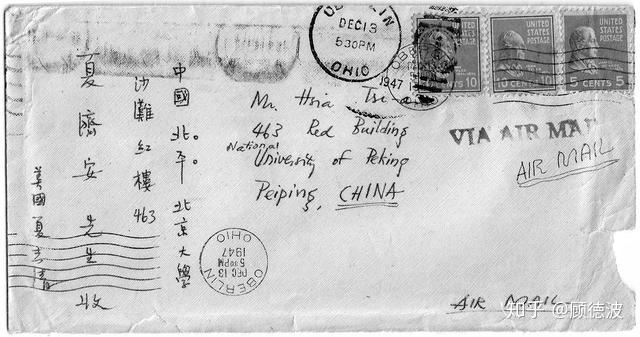 OBERLIN
DEC 13
5 30 PM
OHIO
1947
UNITED STATES POSTAGE
CENTS 10
UNITED STATES POSTAGE
10 CENTS 10
UNITED STATES POSTAGE
5 CENTS 5
VIA AIR MAIL
AIR MAIL
Mr. Hsia Tsi-an
463 Red Building
National University of Peking
Peiping, CHINA
中國北平。北京大學
沙灘紅樓463
夏濟安先生收
美國夏志清
OBERLIN
DEC 13
5 30 PM
1947
OHIO
AIR MAIL
知乎 @顾德波